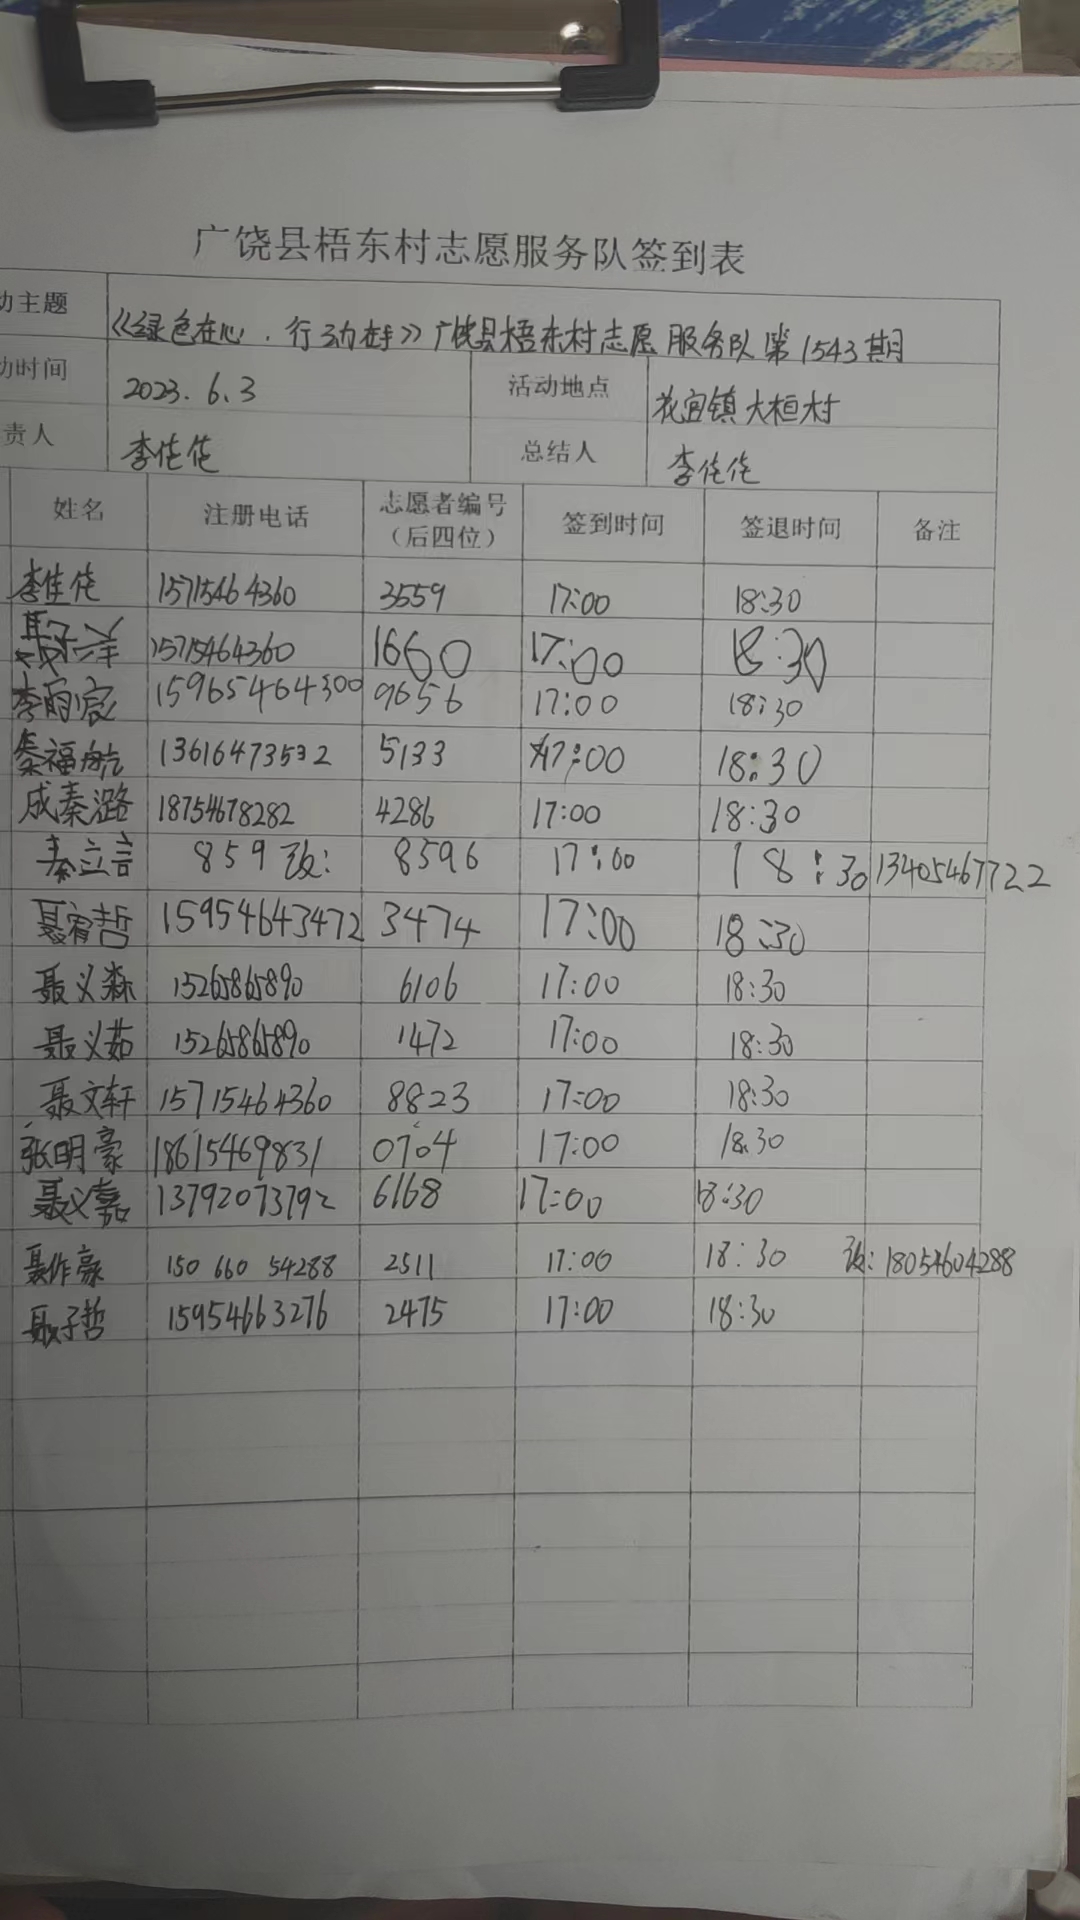 广饶县梧东村志愿服务队签到表
动主题 《绿色在心，行动在手》广饶县梧东村志愿服务队第1543期
动时间 2023.6.3 活动地点 花官镇大桓村
责人 李佳佗 总结人 李佳佗
姓名 注册电话 志愿者编号（后四位） 签到时间 签退时间 备注
李佳佗 15715464360 3559 17:00 18:30
15715464360 1660 17:00 18:30
李雨宸 15965464300 9656 17:00 18:30
秦福航 13616473532 5133 17:00 18:30
成秦潞 18754678282 4286 17:00 18:30
秦立言 859 改: 8596 17:00 18:30 13405467722
聂宥哲 15954643472 3474 17:00 18:30
聂义森 15265865890 6106 17:00 18:30
聂义茹 15265865890 1472 17:00 18:30
聂文轩 15715464360 8823 17:00 18:30
张明豪 18615469831 0704 17:00 18:30
聂义嘉 13792073792 6168 17:00 18:30
聂作豪 150 660 54288 2511 17:00 18:30 改: 18054604288
聂子哲 15954663276 2475 17:00 18:30